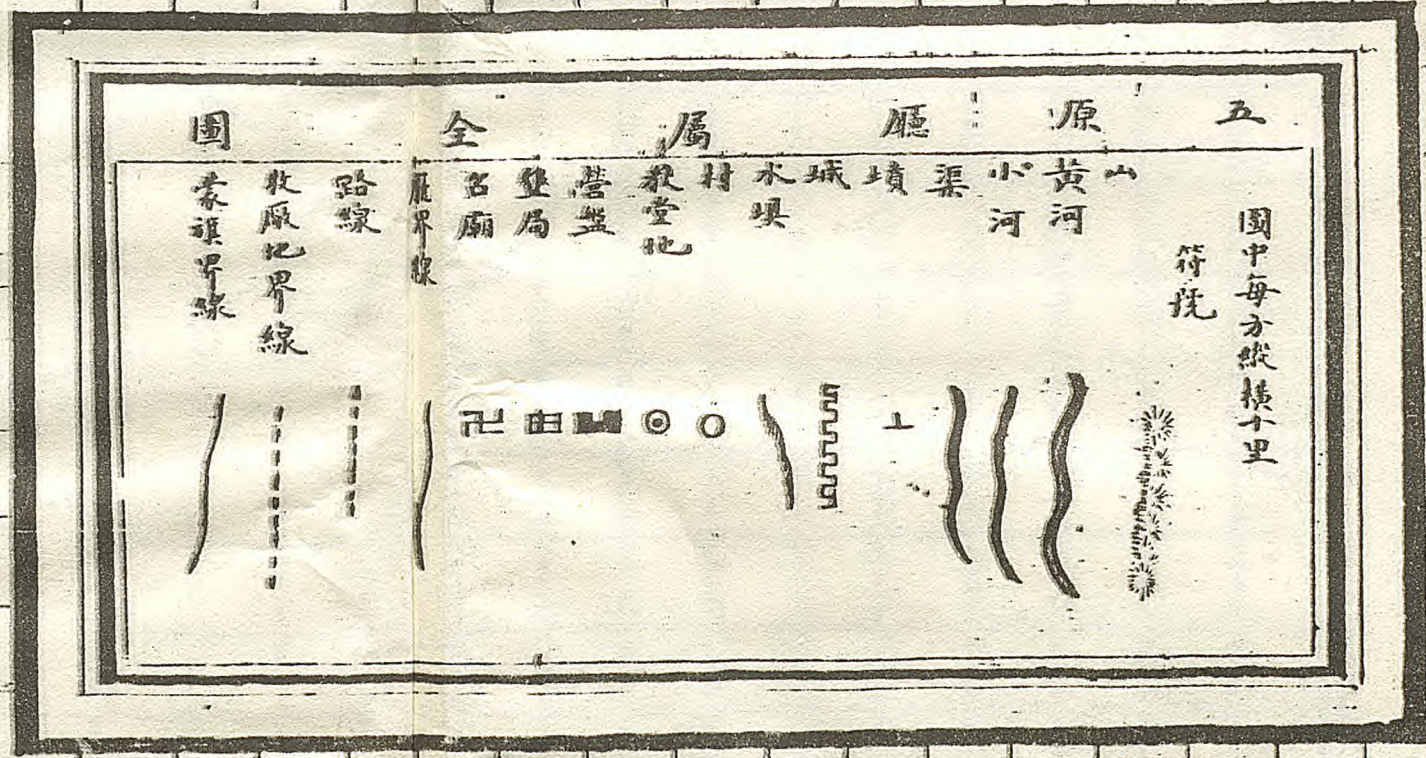 五原廳屬全圖
圖中每方縱横十里
符號
山
黃河
小河
渠
墳
城
水垻
村
教堂地
營盤
墾局
召廟
廳界線
路線
牧廠地界線
蒙旗界線